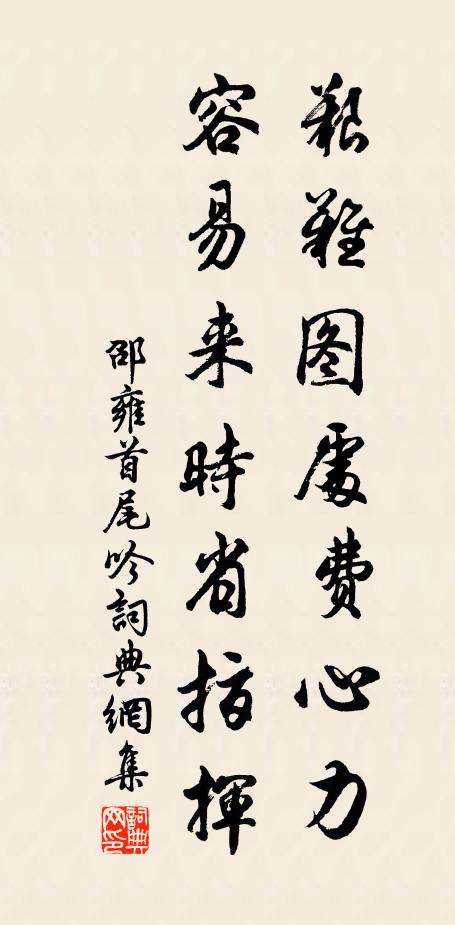 艱難图處費心力
容易来時省指揮
邵雍首尾吟詞典網集
詞典
网印